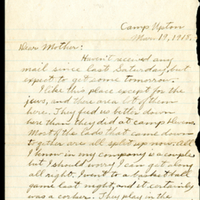 Camp Upton
Nov. 19, 1917.
Dear Mother:
Haven't received any
mail since last Saturday, but
expect to get some tomorrow.
I like this place except for the
jews, and there are a lot of them
here. They feed us better down
here than they did at Camp Devens.
Most of the lads that came down
together are all split up now. All
I know in my company is a couple
but I should worry I can get along
all right. I went to a basket ball
game last night, and it certainly
was a corker. They play in the